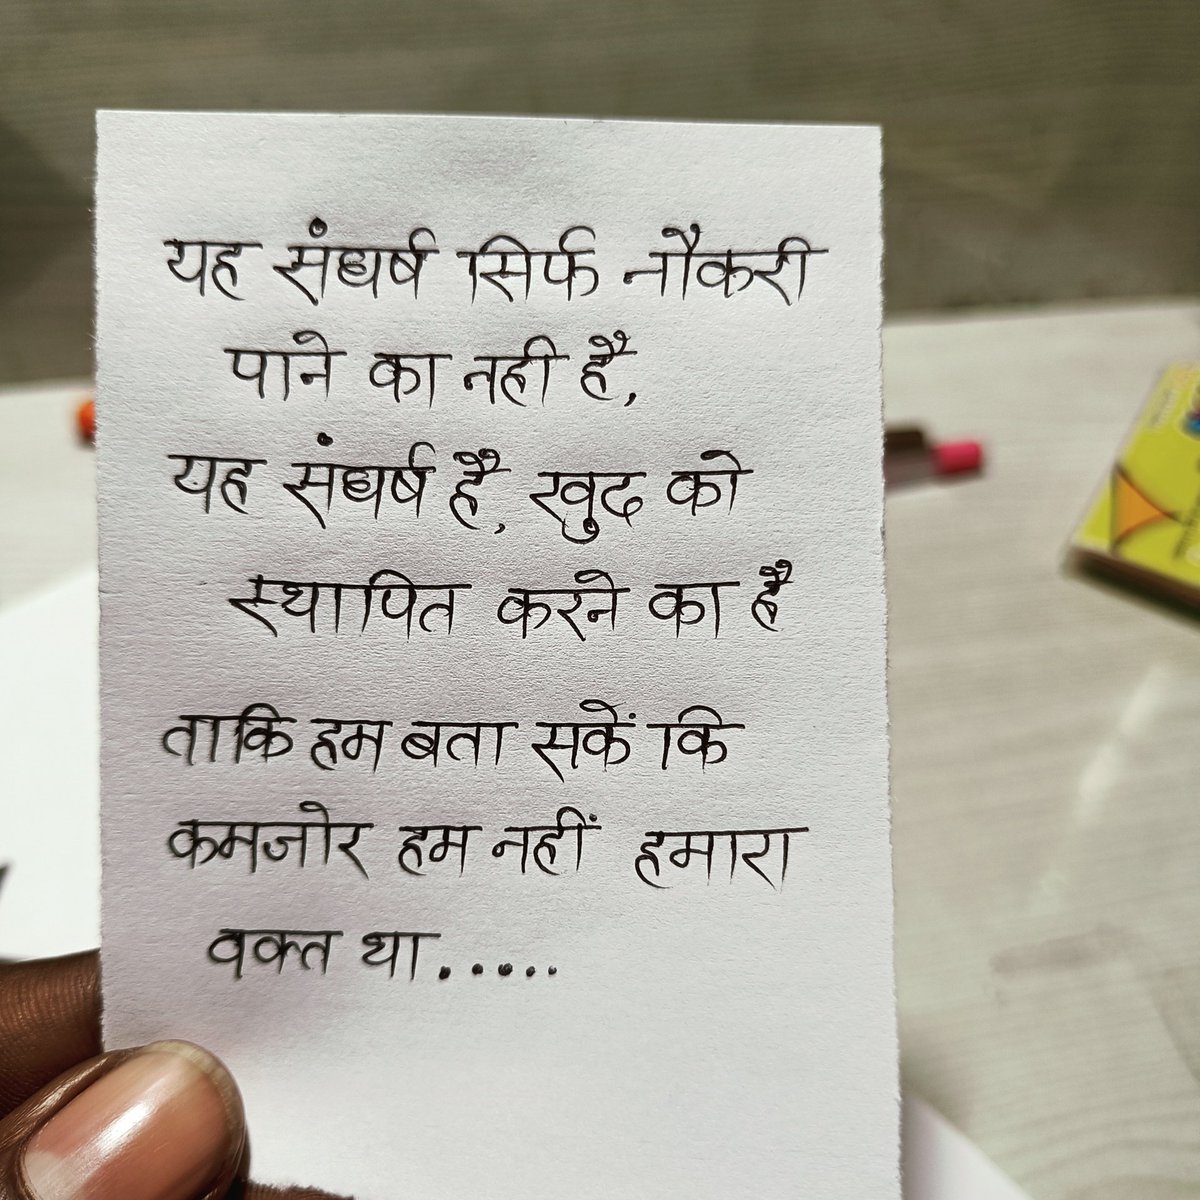 यह संघर्ष सिर्फ नौकरी
पाने का नही है,
यह संघर्ष है, खुद को
स्थापित करने का है
ताकि हम बता सकें कि
कमजोर हम नहीं हमारा
वक्त था.....